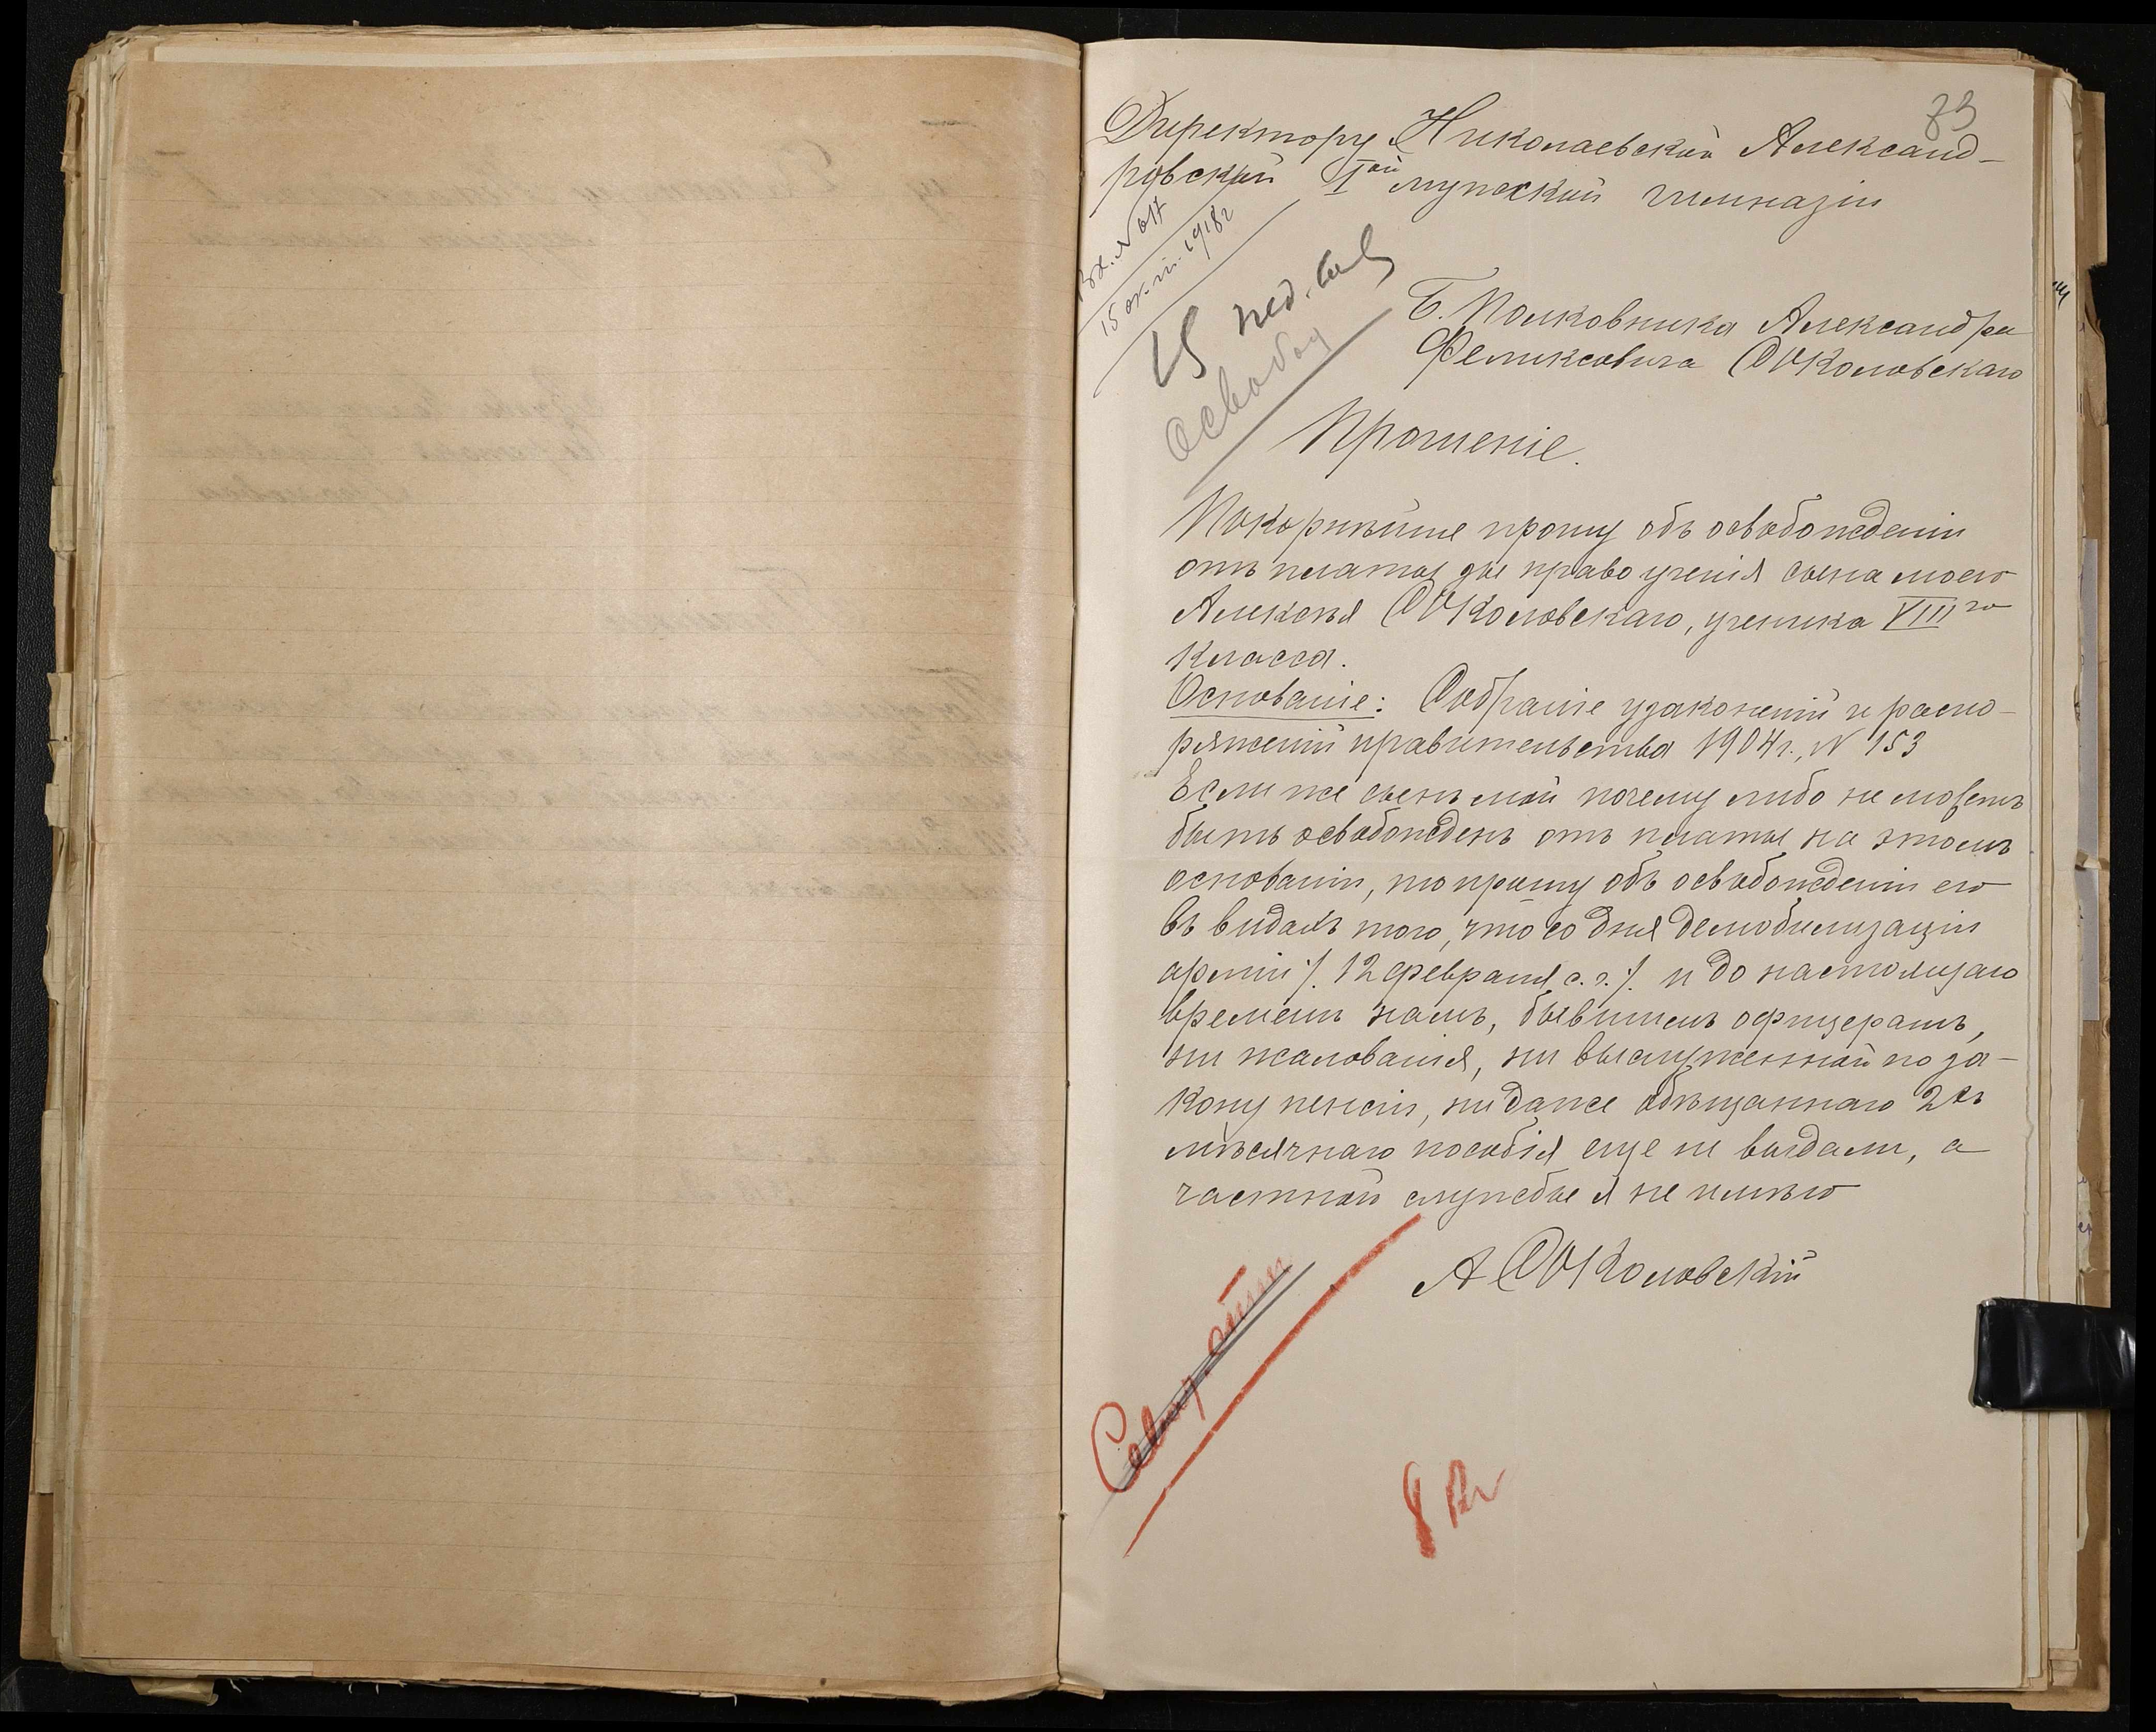 83
Директору Николаевской Александ-
ровской Iой мужской гимназіи
Вх. N 617
1918г
15 пед. сов
Освобод
Б. Полковника Александра
Феликсовича Соколовскаго
Прошеніе.
Покорнѣйше прошу объ освобожденіи
отъ платы за право ученія сына моего
Алексѣя Соколовскаго, ученика VIIIго
класса.
Основаніе: Собраніе узаконеній и распо-
ряженій правительства 1904г., N 153
Если же сынъ мой почему либо не можетъ
быть освобожденъ отъ платы на этомъ
основаніи, то прошу объ освобожденіи его
въ видахъ того, что со дня демобилизаціи
арміи /. 12 февраля с. г. /. и до настоящаго
времени намъ, бывшимъ офицерамъ,
ни жалованія, ни выслуженной по за-
кону пенсіи, ни даже обѣщаннаго 2хъ
мѣсячнаго пособія еще не выдали, а
частной службы я не имѣю
А Соколовскій
8 кл